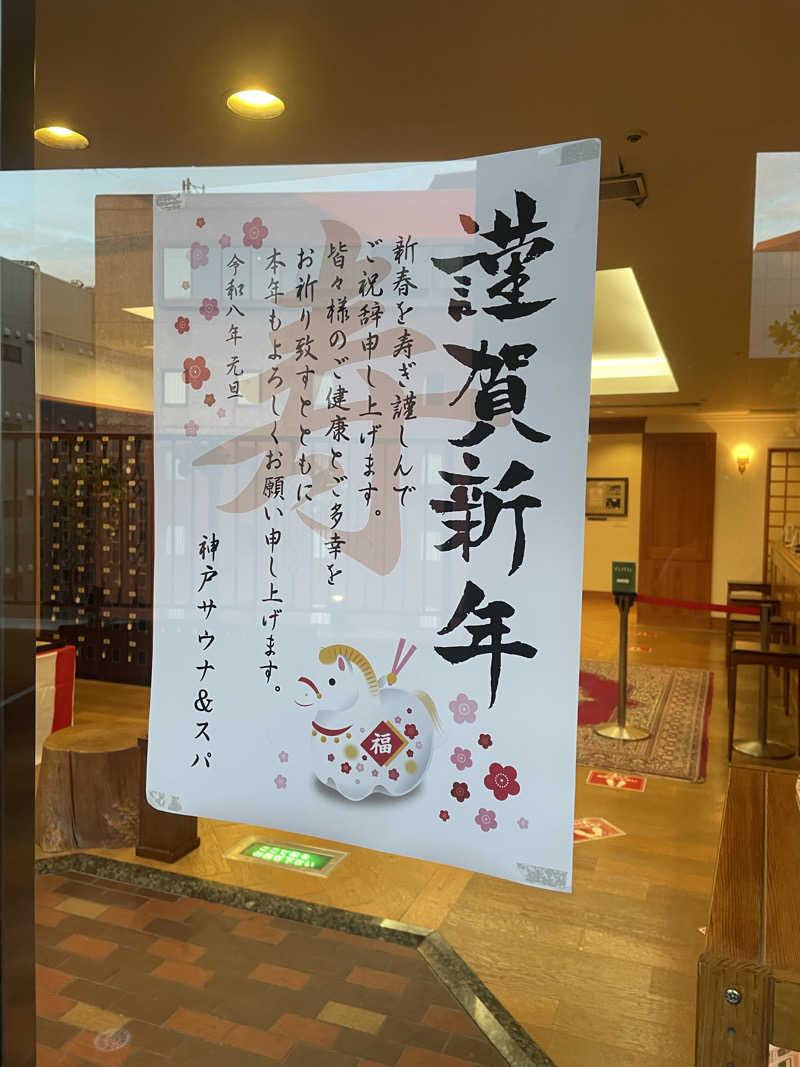 謹賀新年
寿
新春を寿ぎ謹しんで
ご祝辞申し上げます。
皆々様のご健康とご多幸を
お祈り致すとともに
本年もよろしくお願い申し上げます。
令和八年 元旦
神戸サウナ&スパ
福